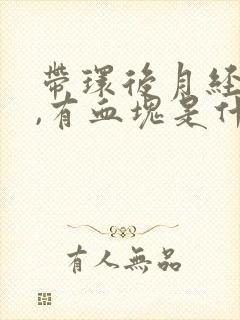 帶環後月経
,有血塊是什
有人無品